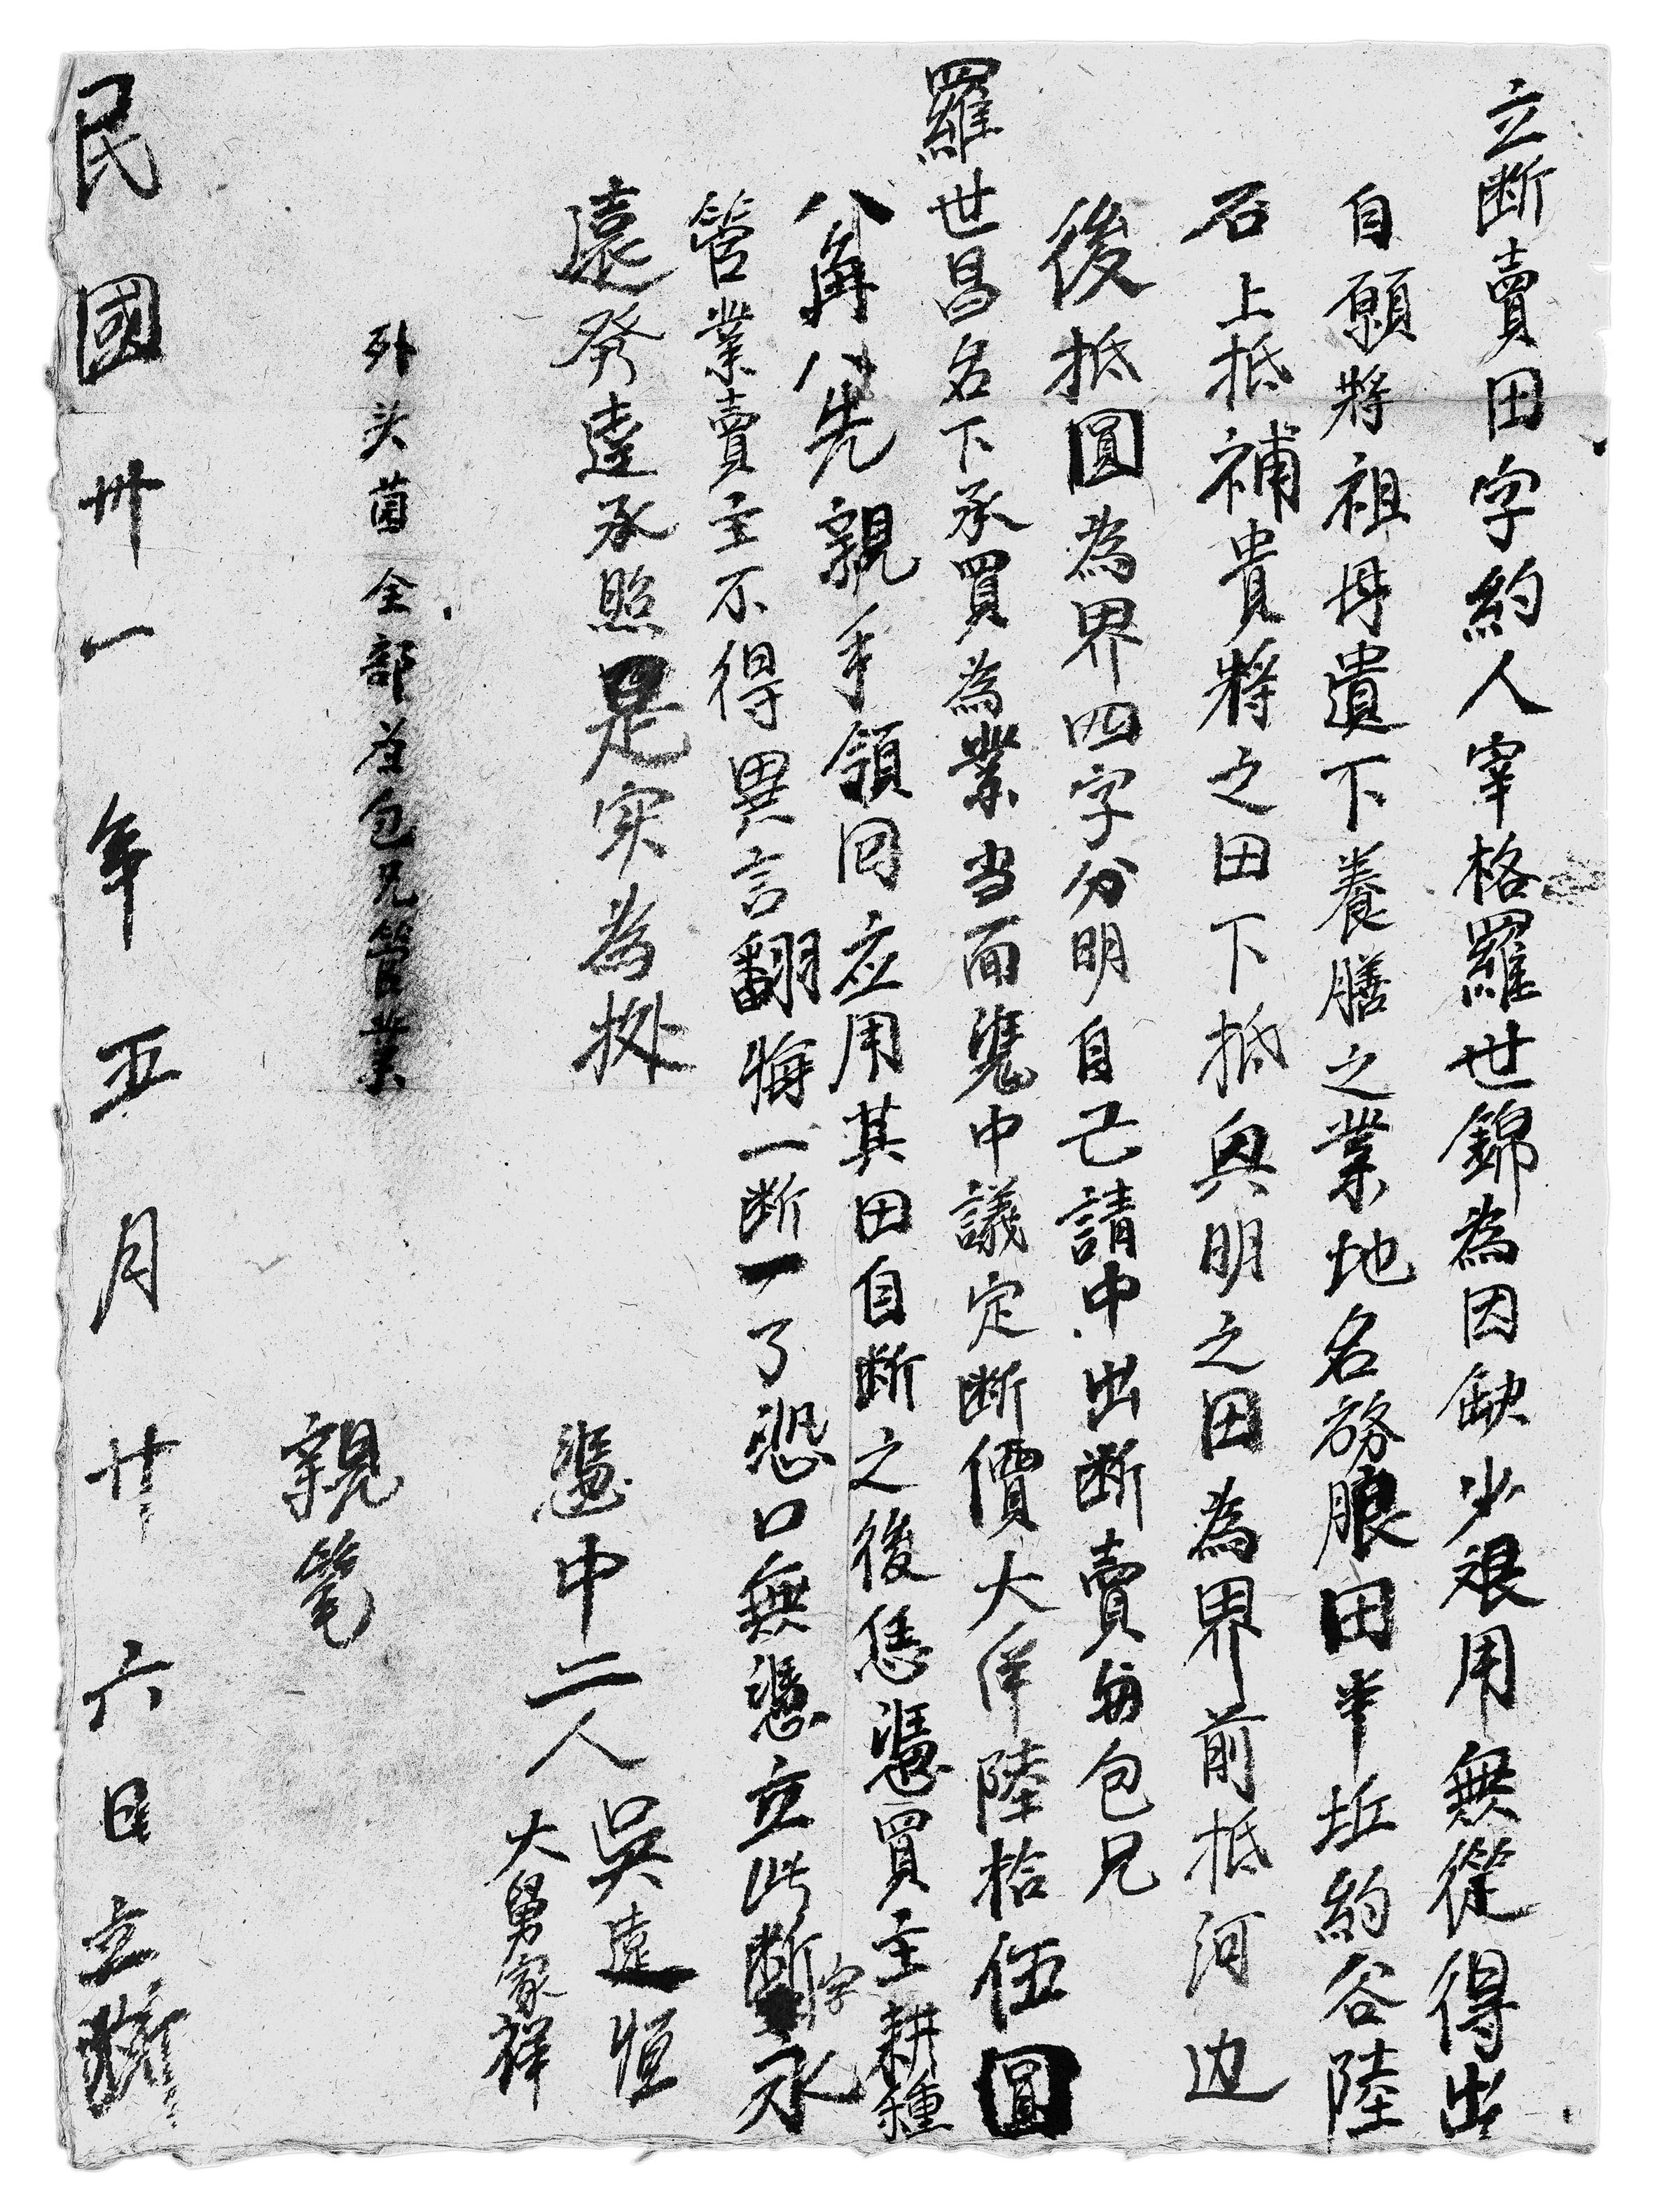 立断賣田字約人宰格羅世錦為因缺少艰用無從得出
自願將祖母遺下養膳之業地名務脹田半坵約谷陸
石上抵補貴將之田下抵與明之田為界前抵河边
後抵圓為界四字分明自己請中出断賣與包兄
羅世昌名下承買為業当面凴中議定断價大洋陸拾伍圓
八角八先親手領囘应用其田自断之後恁憑買主耕種
管業賣主不得異言翻悔一断一了恐口無憑立此断字永
遠發達承照是实為拠
憑中二人吳遠恒
大舅家祥
外头茴全部為包兄管業
親笔
民國卅一年五月廿六日立断